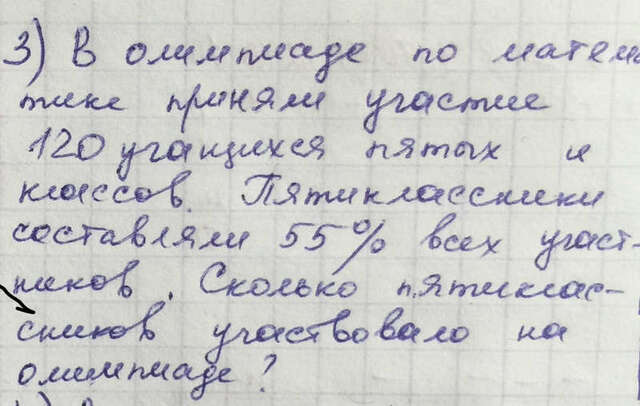 3) В олимпиаде по матема
тике приняли участие
120 учащихся пятых и
классов. Пятиклассники
составляли 55% всех участ-
ников. Сколько пятиклас-
сников участвовало на
олимпиаде?